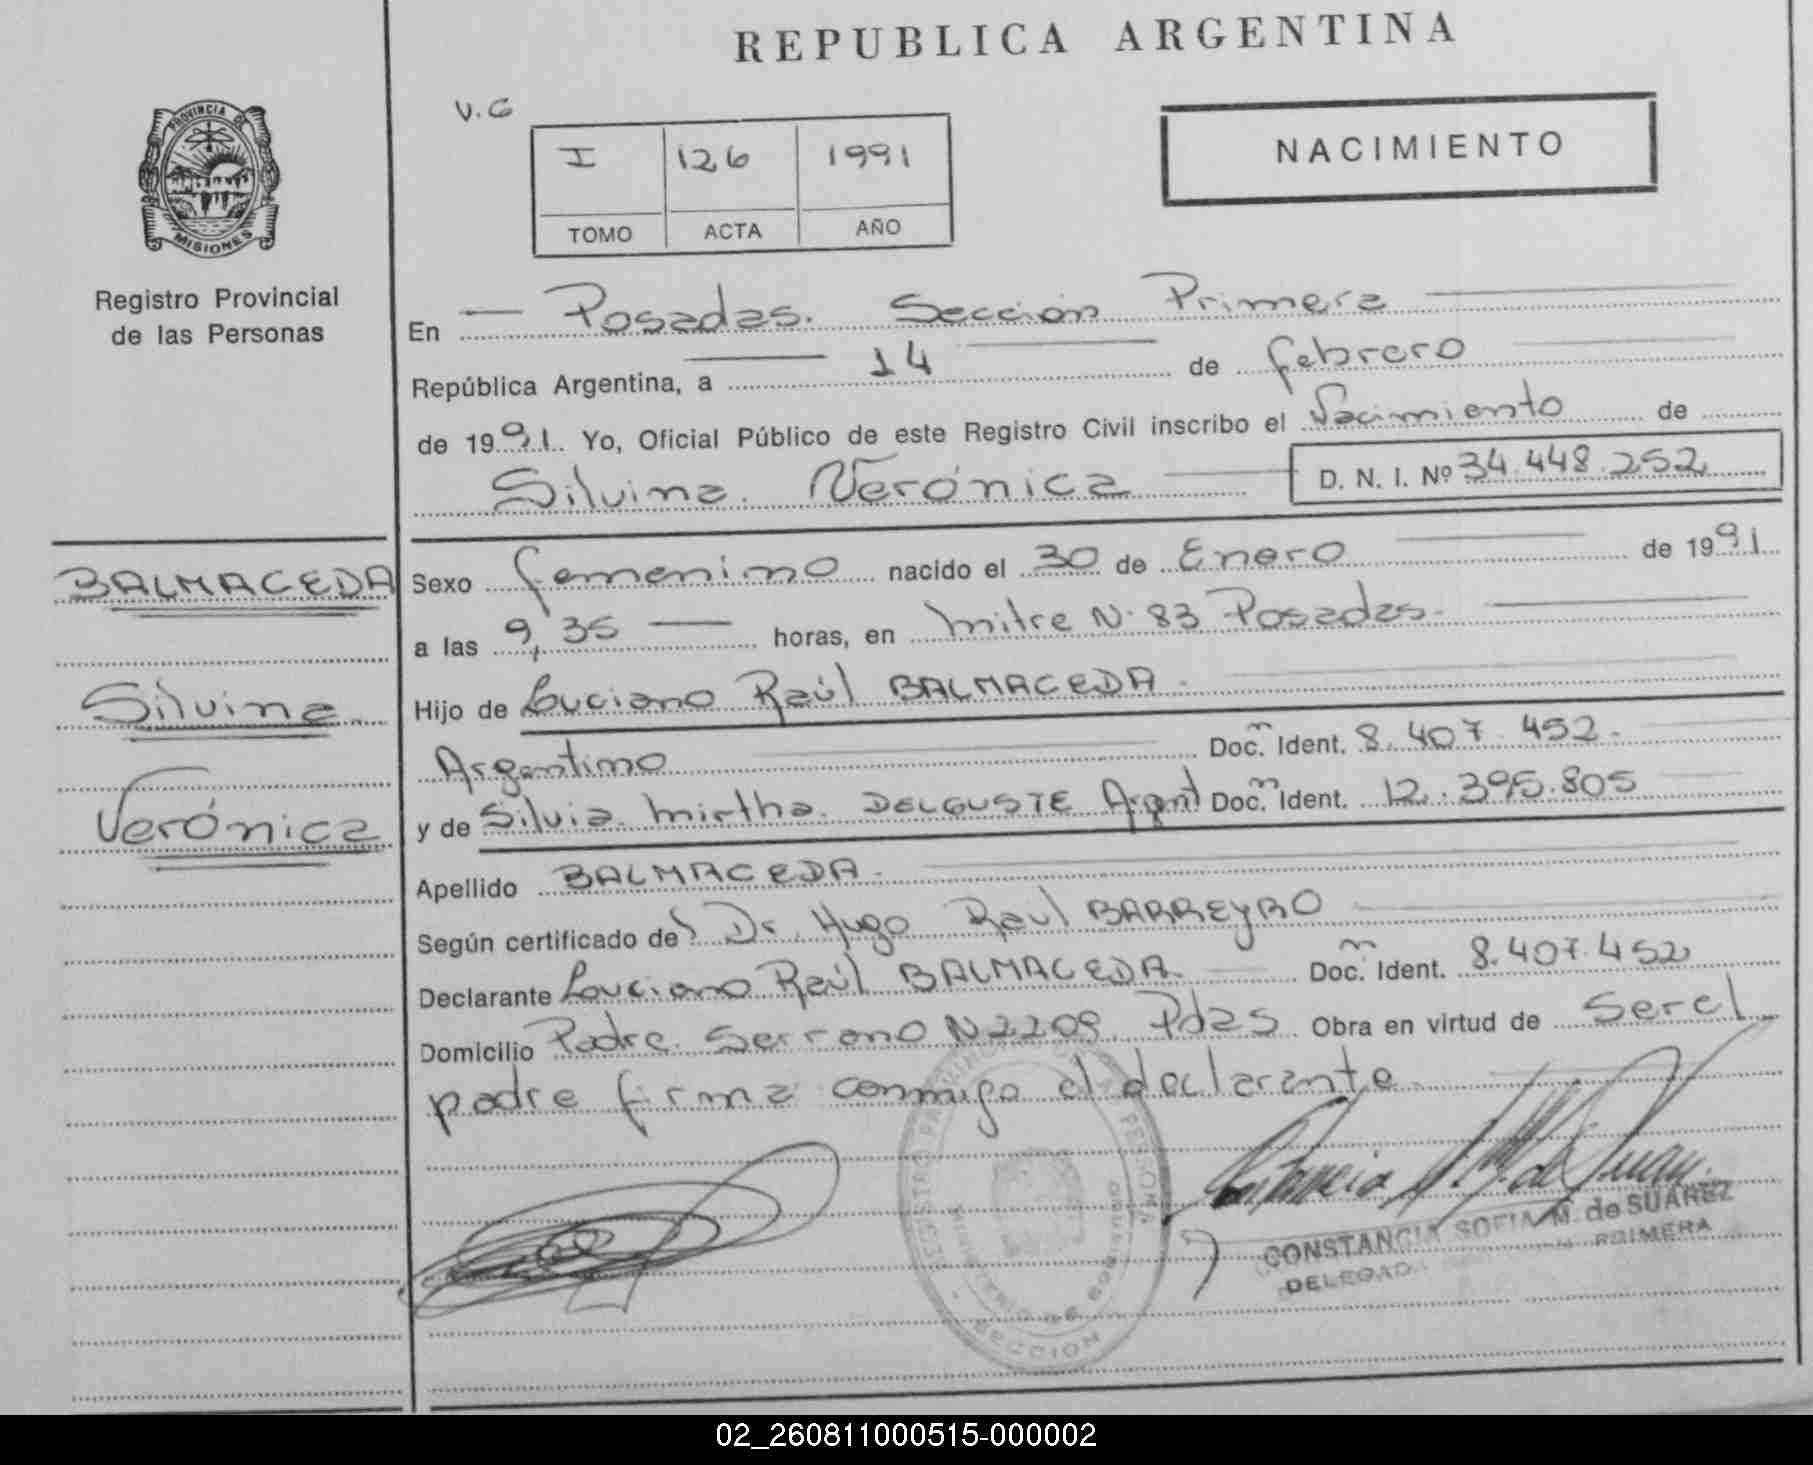 REPUBLICA ARGENTINA
PROVINCIA DE
MISIONES
Registro Provincial
de las Personas
V.G
I 126 1991
TOMO ACTA AÑO
NACIMIENTO
En Posadas. Sección Primera
República Argentina, a 14 de febrero
de 1991. Yo, Oficial Público de este Registro Civil inscribo el Nacimiento de
Silvina Verónica D. N. I. Nº 34.448.252
BALMACEDA
Silvina
Verónica
Sexo femenino nacido el 30 de Enero de 1991
a las 9,35 horas, en Mitre N. 83 Posadas.
Hijo de Luciano Raúl BALMACEDA.
Argentino Doc. Ident. 8.407.452.
y de Silvia Mirtha DELGUSTE Argent Doc. Ident. 12.395.805
Apellido BALMACEDA.
Según certificado del Dr. Hugo Raul BARREYRO
Declarante Luciano Raúl BALMACEDA. Doc. Ident. 8.407.452
Domicilio Padre Serrano N 2209. Pdas Obra en virtud de ser el
padre firma conmigo el declarante
CONSTANCIA SOFIA M. de SUAREZ
PRIMERA
SECCION
02_260811000515-000002